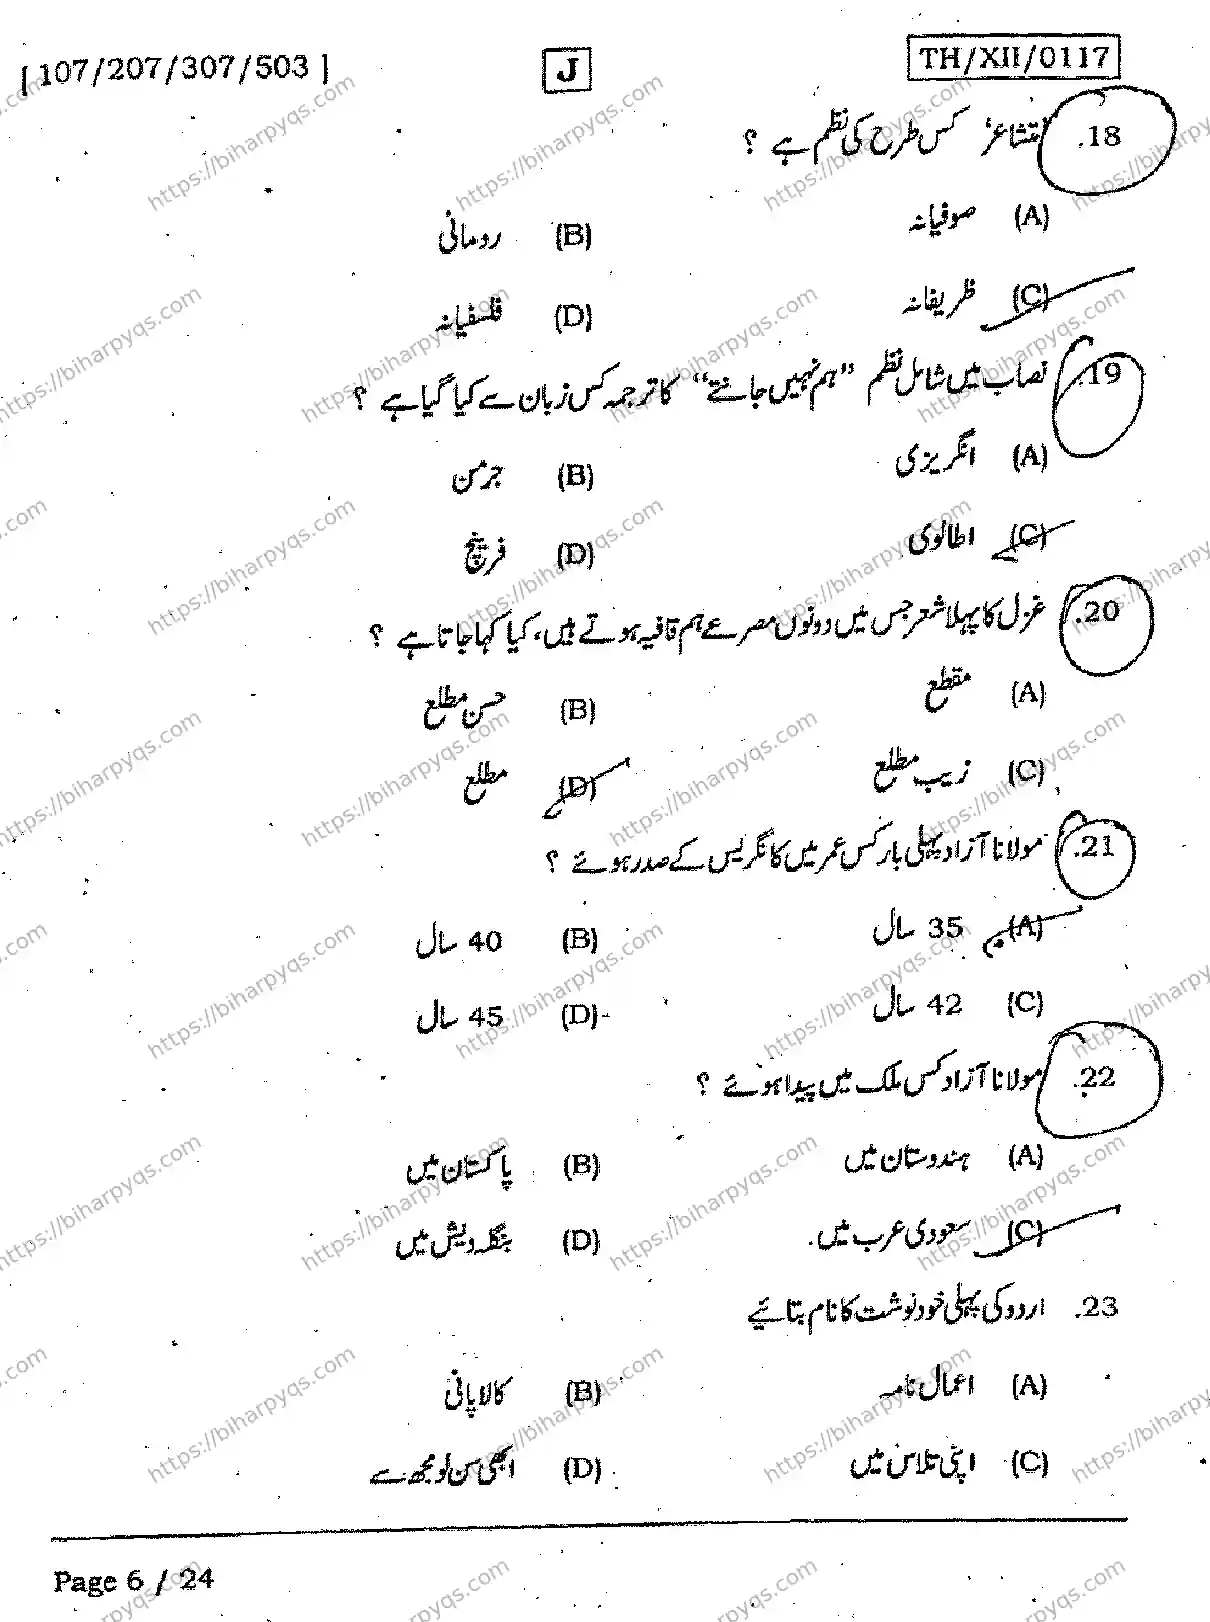 [ 107/207/307/503 ]
J
TH/XII/0117
18. 'متشاعر' کس طرح کی نظم ہے ؟
(A) صوفیانہ
(B) رومانی
(C) ظریفانہ
(D) فلسفیانہ
19. نصاب میں شامل نظم ”ہم نہیں جانتے“ کا ترجمہ کس زبان سے کیا گیا ہے ؟
(A) انگریزی
(B) جرمن
(C) اطالوی
(D) فرینچ
20. غزل کا پہلا شعر جس میں دونوں مصرعے ہم قافیہ ہوتے ہیں، کیا کہا جاتا ہے ؟
(A) مقطع
(B) حسن مطلع
(C) زیب مطلع
(D) مطلع
21. مولانا آزاد پہلی بار کس عمر میں کانگریس کے صدر ہوئے ؟
(A) 35 سال
(B) 40 سال
(C) 42 سال
(D) 45 سال
22. مولانا آزاد کس ملک میں پیدا ہوئے ؟
(A) ہندوستان میں
(B) پاکستان میں
(C) سعودی عرب میں
(D) بنگلہ دیش میں
23. اردو کی پہلی خود نوشت کا نام بتائیے
(A) اعمال نامہ
(B) کالا پانی
(C) اپنی تلاس میں
(D) ابھی سن لو مجھ سے
Page 6 / 24
https://biharpyqs.com